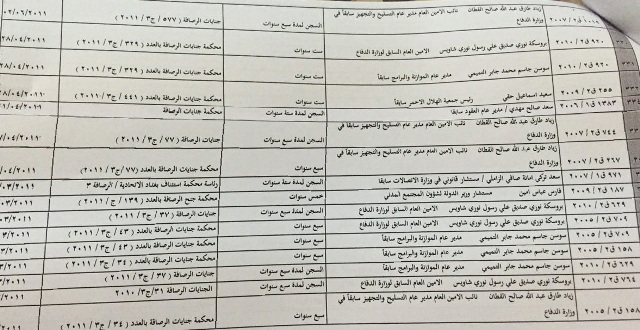 زياد طارق عبد الله صالح القطان نائب الامين العام مدير عام التسليح والتجهيز سابقاً في وزارة الدفاع السجن لمدة سبع سنوات جنايات الرصافة ( ٥٧٧ /ج٣/ ٢٠١١ )
٩٢٠ ق٢/ ٢٠١٠ بروسكة نوري صديق علي رسول نوري شاويس الامين العام السابق لوزارة الدفاع ست سنوات محكمة جنايات الرصافة بالعدد ( ٣٢٩ /ج٣/ ٢٠١١ )
٩٢٠ ق٢/ ٢٠١٠ سوسن جاسم محمد جابر التميمي مدير عام الموازنة والبرامج سابقاً ست سنوات محكمة جنايات الرصافة بالعدد ( ٣٢٩ /ج٣/ ٢٠١١ )
٢٥٥ ق٢/ ٢٠٠٩ سعيد اسماعيل حقي رئيس جمعية الهلال الاحمر سابقاً ست سنوات محكمة جنايات الرصافة بالعدد ( ٤٤١ /ج٣/ ٢٠١١ )
١٣٨٣ ق١/ ٢٠٠٦ سعد صالح مهدي / مدير عام العقود سابقا السجن لمدة ستة سنوات محكمة جنايات الرصافة
٧٤٤ ق٢/ ٢٠٠٧ زياد طارق عبد الله صالح القطان نائب الامين العام مدير عام التسليح والتجهيز سابقاً في وزارة الدفاع السجن لمدة سبع سنوات جنايات الرصافة ( ٧٧ /ج٣/ ٢٠١١ )
٢٦٧ ق٢/ ٢٠٠٧ زياد طارق عبد الله صالح القطان نائب الامين العام مدير عام التسليح والتجهيز سابقاً في وزارة الدفاع سبع سنوات محكمة جنايات الرصافة بالعدد ( ٧٧/ج٣/ ٢٠١١ )
٩٧١ ق١/ ٢٠٠٧ سعد تركي امانة صافي الزاملي / مستشار قانوني في وزارة الاتصالات سابقا السجن لمدة ستة سنوات رئاسة محكمة استئناف بغداد الاتحادية / الرصافة ٣
١٨٧ ق٢/ ٢٠٠٩ فارس عباس امين مستشار وزير الدولة لشؤون المجتمع المدني خمس سنوات محكمة جنح الرصافة بالعدد ( ١٣٩ /ج / ٢٠١١ )
٦٢٩ ق٢/ ٢٠١٠ بروسكة نوري صديق علي رسول نوري شاويس الامين العام السابق لوزارة الدفاع السجن لمدة سبع سنوات جنايات الرصافة ( ٣٧ /ج٣/ ٢٠١١ )
٧٠٩ ق٢/ ٢٠٠٥ بروسكة نوري صديق علي رسول نوري شاويس الامين العام السابق لوزارة الدفاع سبع سنوات محكمة جنايات الرصافة بالعدد ( ٤٣ /ج٣/ ٢٠١١ )
٧٠٩ ق٢/ ٢٠٠٥ سوسن جاسم محمد جابر التميمي مدير عام الموازنة والبرامج سابقاً سبع سنوات محكمة جنايات الرصافة بالعدد ( ٤٣ /ج٣/ ٢٠١١ )
١٥٨ ق٢/ ٢٠٠٥ سوسن جاسم محمد جابر التميمي مدير عام الموازنة والبرامج سابقاً سبع سنوات محكمة جنايات الرصافة بالعدد ( ٣٤ /ج٣/ ٢٠١١ )
٦٢٩ ق٢/ ٢٠١٠ سوسن جاسم محمد جابر التميمي مدير عام الموازنة والبرامج سابقاً السجن لمدة سبع سنوات جنايات الرصافة ( ٣٧ /ج٣/ ٢٠١١ )
٧٦٤ ق٢/ ٢٠١٠ بروسكة نوري صديق علي رسول نوري شاويس الامين العام السابق لوزارة الدفاع السجن لمدة سبع سنوات الجنايات الرصافة ٣١/ج٣/ ٢٠١٠
١٥ ق٢/ ٢٠٠٥ زياد طارق عبد الله صالح القطان نائب الامين العام مدير عام التسليح والتجهيز سابقاً في وزارة الدفاع سبع سنوات محكمة جنايات الرصافة بالعدد ( ٣٤ /ج٣/ ٢٠١١ )